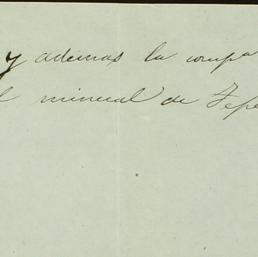 y ademas la compa
l mineral de Tepe